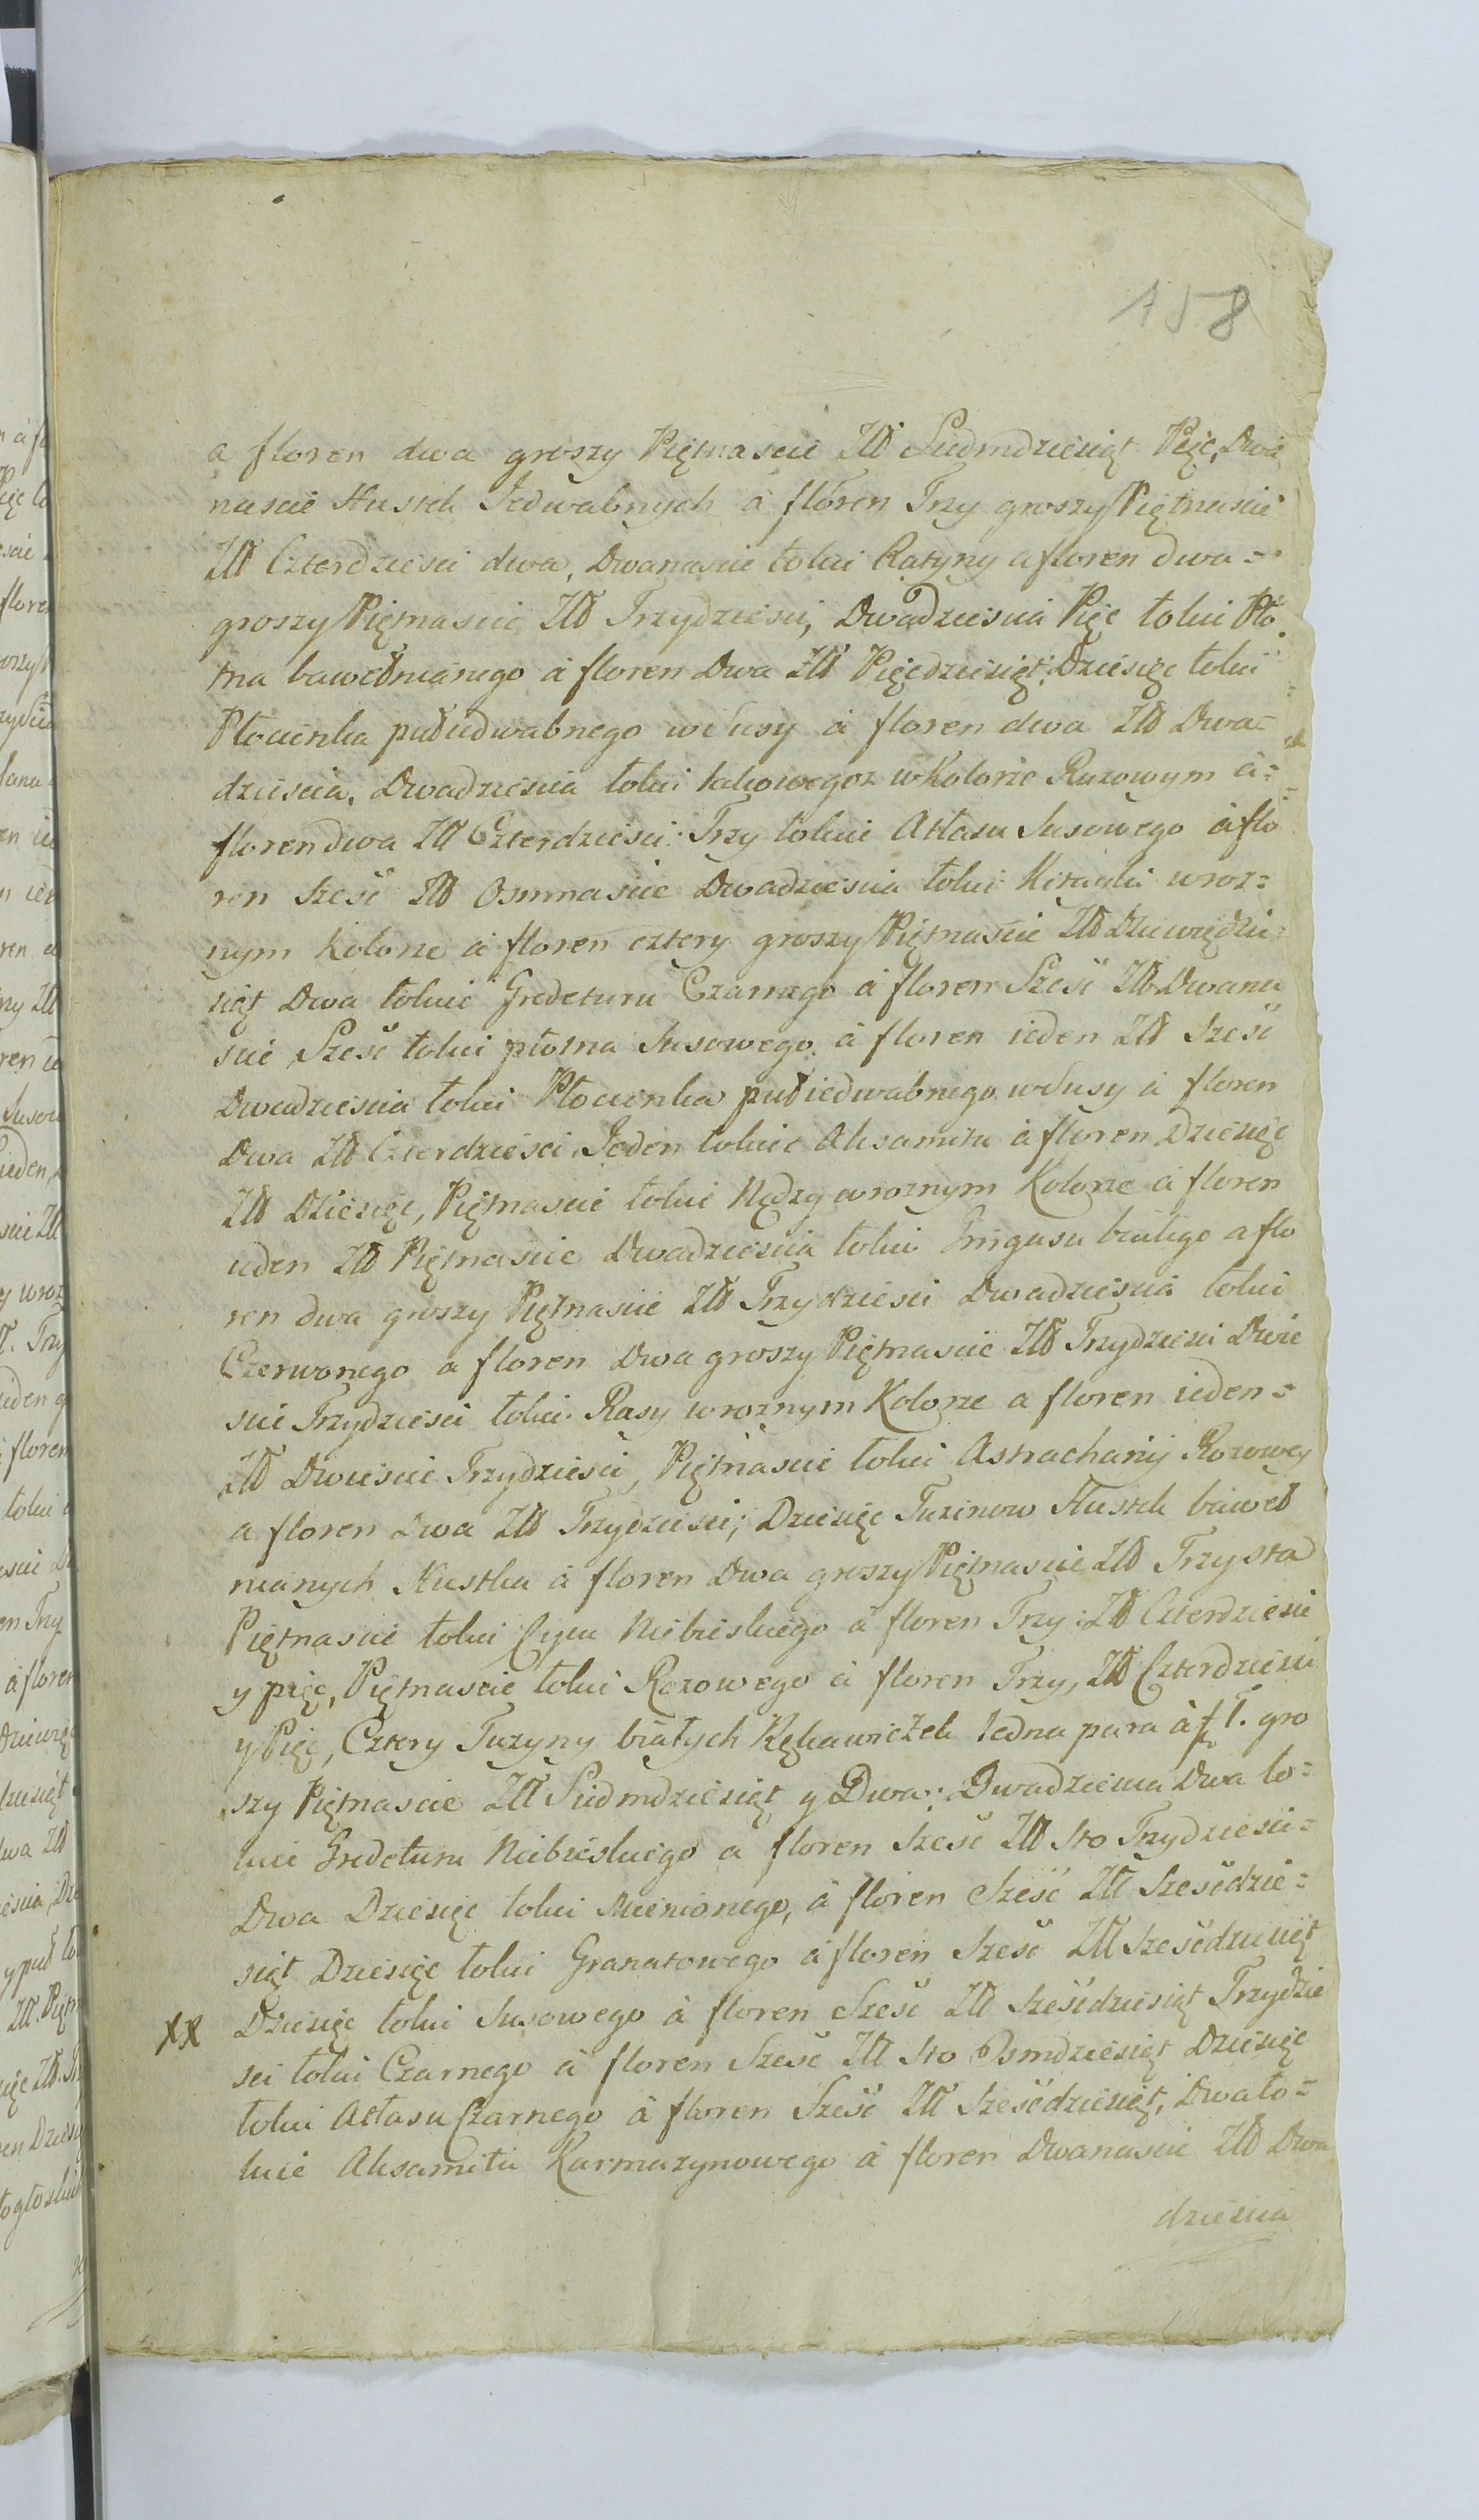 158
a floren dwa groszy Piętnascie Złł Siedmdziesiąt Pięc, Dwa
nascie Hustek Jedwabnych á floren Trzy groszy Piętnascie
Złł Czterdziesci dwa, Dwanascie łokci Ratyny a floren dwa =
groszy Piętnascie Złł Trzydziesci, Dwadziescia Pięc łokci Płó
tna bawełnianego á floren Dwa Złł Pięcdziesiąt, Dziesięc łokci
Płocienka pułiedwabnego w Susy á floren dwa Złł Dwa=
dziescia, Dwadziescia łokci takowegoz w Kolorze Razowym á=
floren dwa Złł Czterdziesci. Trzy łokcie Atłasu Susowego á flo
ren Szesc Złł Osmnascie Dwadziescia łokci Kitayki w roz=
nym Kolorze á floren cztery groszy Piętnascie Złł Dziewięcdzie
siąt Dwa łokcie Gredeturu Czarnego á floren Szesc Złł Dwana
scie Szesc łokci płotna Susowego á floren ieden Złł Szesc
Dwadziescia łokci Płocienka pułiedwabnego w Susy á floren
Dwa Złł Czterdziesci, Jeden łokiec Aksamitu á floren Dziesięc
Złł Dziesięc, Piętnascie łokci Nędzy w roznym Kolorze á floren
ieden Złł Piętnascie Dwadziescia łokci białego a flo
ren dwa groszy Piętnascie Złł Trzydziesci Dwadziescia łokci
Czerwonego a floren Dwa groszy Piętnascie Złł Trzydziesci Dwie
scie Trzydziesci łokci Rasy w roznym Kolorze a floren ieden =
Złł Dwiescie Trzydziesci, Piętnascie łokci Astrachanij Rozowey
a floren Dwa Złł Trzydziesci; Dziesięc Tuzinow Hustek baweł
nianych Hustka á floren Dwa groszy Piętnascie Złł Trzysta
Piętnascie łokci Cycu Niebieskiego á floren Trzy: Złł Czterdziesci
y pięc, Piętnascie łokci Rozowego á floren Trzy, Złł Czterdziesci
y Pięc, Cztery Tuzyny białych Rękawiczek Jedna para á f 1. gro
szy Piętnascie Złł Siedmdziesiąt y Dwa; Dwadziescia Dwa ło=
kcie Gredeturu Niebieskiego a floren Szesc Złł Sto Trzydziesci=
Dwa Dziesięc łokci Mienionego, á floren Szesc Złł Szescdzie=
siąt Dziesięc łokci Granatowego á floren Szesc Złł Szescdziesiąt
xx Dziesięc łokci Susowego á floren Szesc Złł Szescdziesiąt Trzydzie
sci łokci Czarnego á floren Szesc Złł Sto Osmdziesiąt Dziesięc
łokci Atłasu Czarnego á floren Szesc Złł Szescdziesiąt, Dwa ło=
kcie Aksamitu Karmazynowego á floren Dwanascie Złł Dwa
dziescia